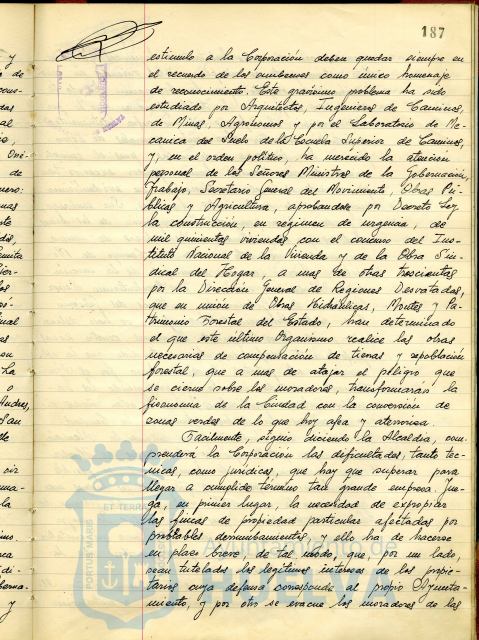 187
estimulo a la Corporación deben quedar siempre en
el recuerdo de los onubenses como único homenaje
de reconocimiento. Este gravísimo problema ha sido
estudiado por Arquitectos, Ingenieros de Caminos,
de Minas, Agrónomos y por el Laboratorio de Me-
canica del Suelo de la Escuela Superior de Caminos,
y, en el orden político, ha merecido la atención
personal de los Señores Ministros de la Gobernación,
Trabajo, Secretario General del Movimiento, Obras Pú-
blicas y Agricultura, aprobandose por Decreto Ley
la construcción, en regimen de urgencia, de
mil quinientas viviendas con el concurso del Ins-
tituto Nacional de la Vivienda y de la Obra Sin-
dical del Hogar, a mas de otras trescientas
por la Dirección General de Regiones Devastadas,
que en unión de Obras Hidráulicas, Montes y Pa-
trimonio Forestal del Estado, han determinado
el que este último Organismo realice las obras
necesarias de compensación de tierras y repoblación
forestal, que a mas de atajar el peligro que
se cierne sobre los moradores, transformarán la
fisonomia de la Ciudad con la conversión de
zonas verdes de lo que hoy afea y atemoriza.
Facilmente, siguió diciendo la Alcaldia, com-
prenderá la Corporación las dificultades, tanto tec-
nicas, como juridicas, que hay que superar para
llegar a cumplido término tan grande empresa. Juz-
ga, en primer lugar, la necesidad de expropiar
las fincas de propiedad particular afectadas por
probables derrumbamientos, y ello ha de hacerse
en plazo breve, de tal modo, que, por un lado,
sean tutelados los legítimos intereses de los propie-
tarios cuya defensa corresponde al propio Ayunta-
miento, y por otro se evacue los moradores de las
PORTUS MARIS
ET TERRAE
Ayuntamiento de
HUELVA